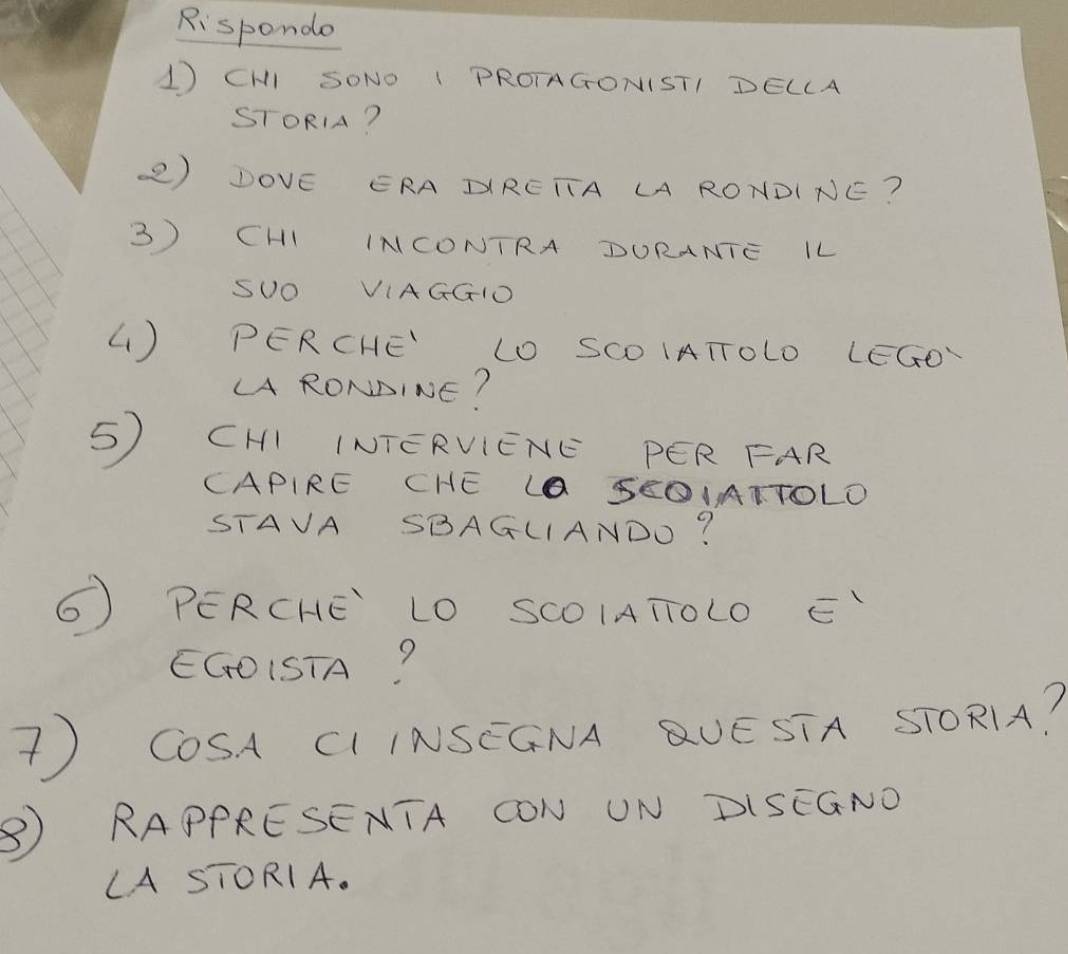 Rispondo
1) CHI SONO I PROTAGONISTI DELLA
STORIA?
2) DOVE ERA DIRETTA LA RONDINE?
3) CHI INCONTRA DURANTE IL
SUO VIAGGIO
4) PERCHE' LO SCOIATTOLO LEGO'
LA RONDINE?
5) CHI INTERVIENE PER FAR
CAPIRE CHE LO SCOIATTOLO
STAVA SBAGLIANDO?
6) PERCHE' LO SCOIATTOLO E'
EGOISTA?
7) COSA CI INSEGNA QUESTA STORIA?
8) RAPPRESENTA CON UN DISEGNO
LA STORIA.